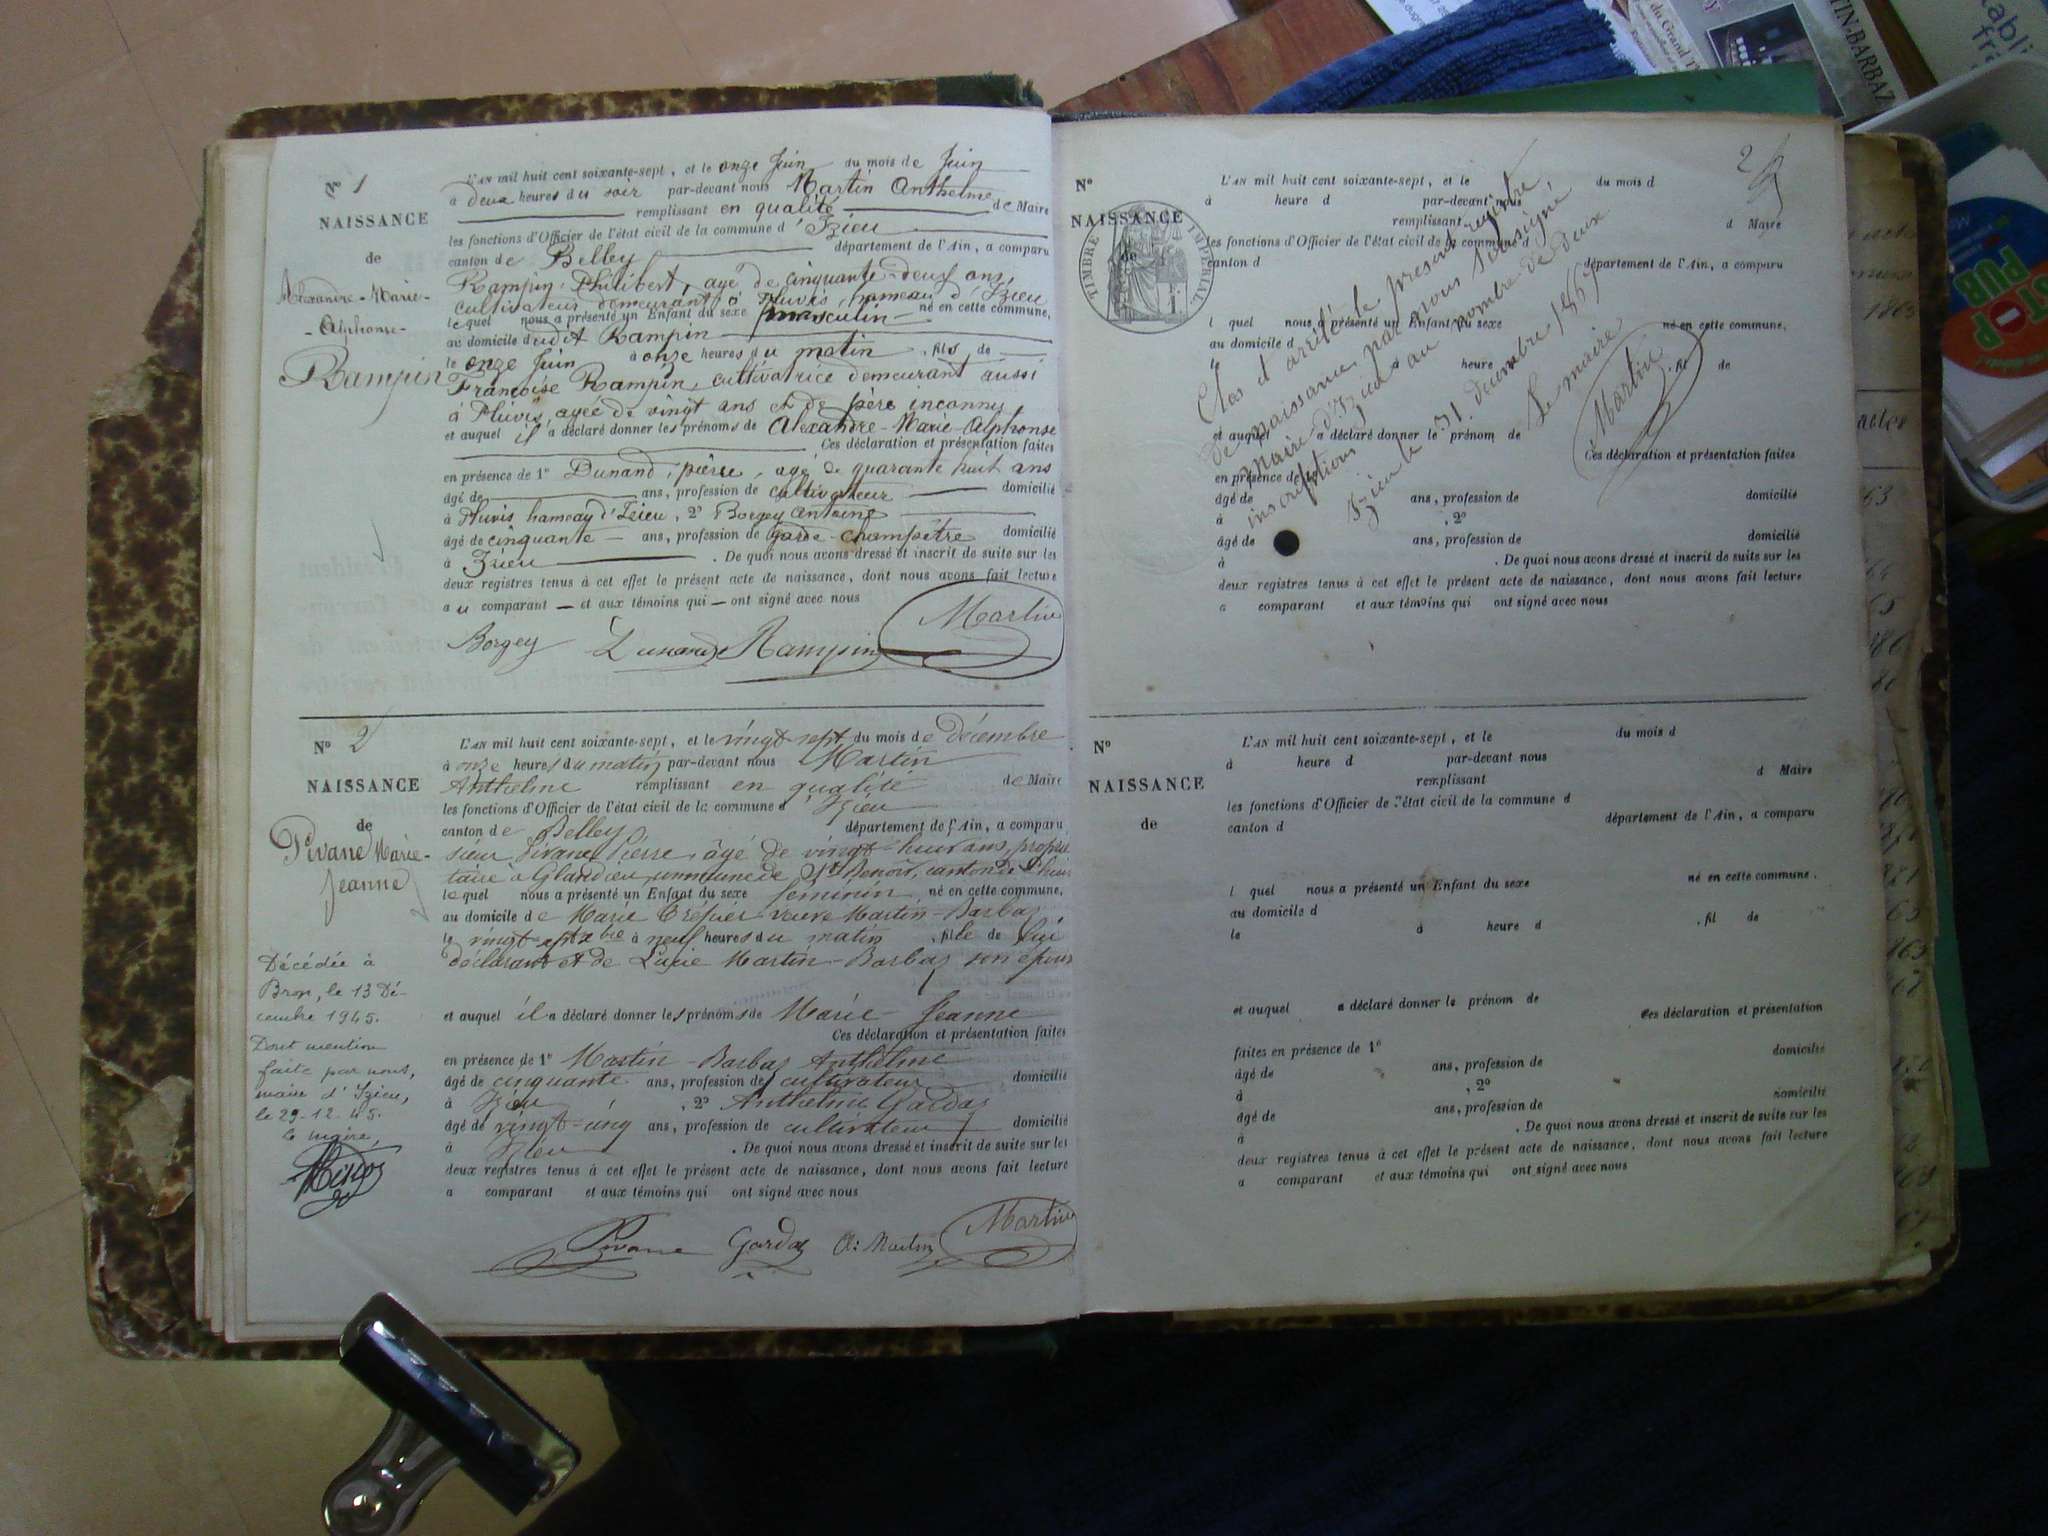 N° 1
NAISSANCE
de
Alexandre-Marie-
-Alphonse-
Rampin
L'AN mil huit cent soixante-sept, et le onze Juin du mois de Juin
à deux heures du soir par-devant nous Martin Anthelme
remplissant en qualité de Maire
les fonctions d'Officier de l'état civil de la commune d'Izieu
canton de Belley département de l'Ain, a comparu
Rampin Philibert, agé de cinquante-deux ans,
cultivateur demeurant à Pluvis, hameau d'Izieu
lequel nous a présenté un Enfant du sexe masculin né en cette commune,
au domicile dudit Rampin
le onze Juin à onze heures du matin, fils de
Françoise Rampin, cultivatrice demeurant aussi
à Pluvis, agée de vingt ans et de père inconnu
et auquel il a déclaré donner les prénoms de Alexandre-Marie-Alphonse
Ces déclaration et présentation faites
en présence de 1° Dunand, pierre, agé de quarante huit ans
âgé de ans, profession de cultivateur domicilié
à Pluvis hameau d'Izieu, 2° Borgey Antoine
âgé de cinquante ans, profession de garde-champêtre domicilié
à Izieu . De quoi nous avons dressé et inscrit de suite sur les
deux registres tenus à cet effet le présent acte de naissance, dont nous avons fait lecture
au comparant et aux témoins qui ont signé avec nous
Borgey Dunand Rampin Martin
N° 2
NAISSANCE
de
Pivane Marie-
Jeanne
Décédée à
Bron, le 13 Dé-
cembre 1945.
Dont mention
faite par nous,
maire d'Izieu,
le 29-12-45.
le maire,
L'AN mil huit cent soixante-sept, et le vingt sept du mois de décembre
à onze heures du matin par-devant nous Martin
Anthelme remplissant en qualité de Maire
les fonctions d'Officier de l'état civil de la commune d'Izieu
canton de Belley département de l'Ain, a comparu
sieur Pivane Pierre, âgé de vingt-huit ans, proprié
taire à Glandieu commune de St Benoit, canton de
lequel nous a présenté un Enfant du sexe féminin né en cette commune,
au domicile de Marie Trépier veuve Martin-Barbaz
le vingt-sept xbre à neuf heures du matin, fille de lui
déclarant et de Lucie Martin-Barbaz son épouse
et auquel il a déclaré donner les prénoms de Marie-Jeanne
Ces déclaration et présentation faites
en présence de 1° Martin-Barbaz Anthelme
âgé de cinquante ans, profession de cultivateur domicilié
à Izieu, 2° Anthelme Gardaz
âgé de vingt-cinq ans, profession de cultivateur domicilié
à Izieu . De quoi nous avons dressé et inscrit de suite sur les
deux registres tenus à cet effet le présent acte de naissance, dont nous avons fait lecture
a comparant et aux témoins qui ont signé avec nous
Pivane Gardaz A: Martin Martin
2
N°
NAISSANCE
de
TIMBRE IMPERIAL
L'AN mil huit cent soixante-sept, et le du mois d
à heure d par-devant nous
remplissant d Maire
les fonctions d'Officier de l'état civil de la commune d
canton d département de l'Ain, a comparu
l quel nous a présenté un Enfant du sexe né en cette commune,
au domicile d
le à heure d , fil de
et auquel a déclaré donner le prénom de
Ces déclaration et présentation faites
en présence de 1°
âgé de ans, profession de domicilié
à , 2°
âgé de ans, profession de domicilié
à . De quoi nous avons dressé et inscrit de suite sur les
deux registres tenus à cet effet le présent acte de naissance, dont nous avons fait lecture
a comparant et aux témoins qui ont signé avec nous
Clos et arrêté le présent registre
de naissance, par nous soussigné
maire d'Izieu au nombre de deux
inscriptions
Izieu le 31 décembre 1867
Le maire
Martin
N°
NAISSANCE
de
L'AN mil huit cent soixante-sept, et le du mois d
à heure d par-devant nous
remplissant d Maire
les fonctions d'Officier de l'état civil de la commune d
canton d département de l'Ain, a comparu
l quel nous a présenté un Enfant du sexe né en cette commune.
au domicile d
le à heure d , fil de
et auquel a déclaré donner le prénom de
Ces déclaration et présentation
faites en présence de 1°
âgé de ans, profession de domicilié
à , 2°
âgé de ans, profession de domicilié
à . De quoi nous avons dressé et inscrit de suite sur les
deux registres tenus à cet effet le présent acte de naissance, dont nous avons fait lecture
a comparant et aux témoins qui ont signé avec nous
du Grand
TIN-BARBAZ
STOP
PUB
actes